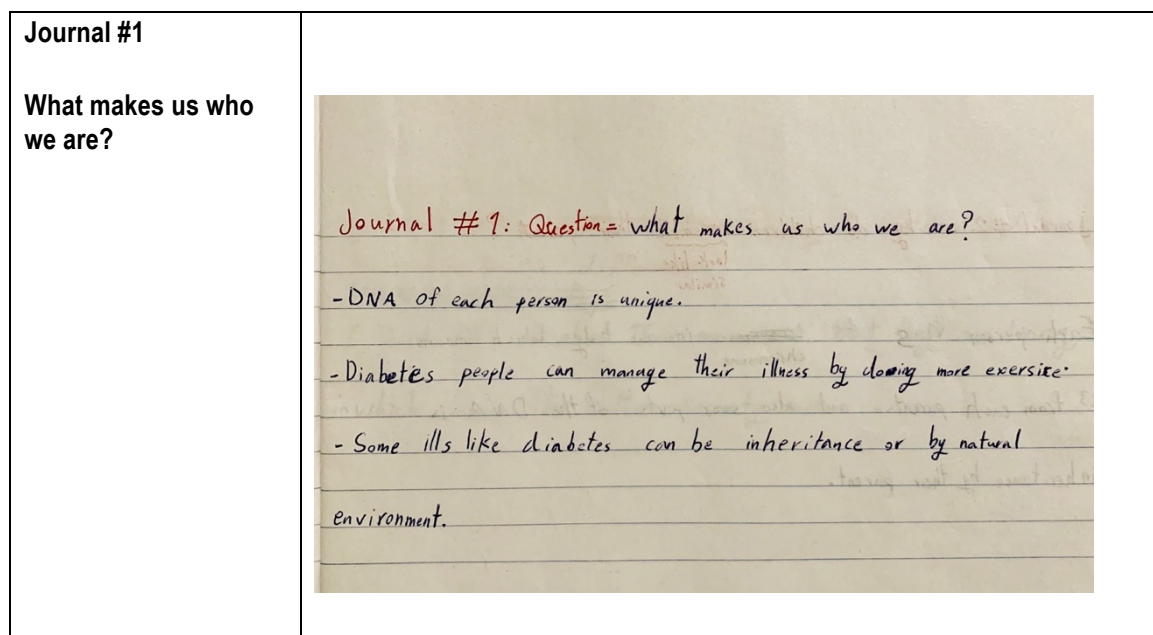 Journal #1
What makes us who
we are?
Journal # 1: Question = what makes us who we are?
- DNA of each person is unique.
- Diabeties people can manage their illness by doing more exersice.
- Some ills like diabetes can be inheritance or by natural
environment.